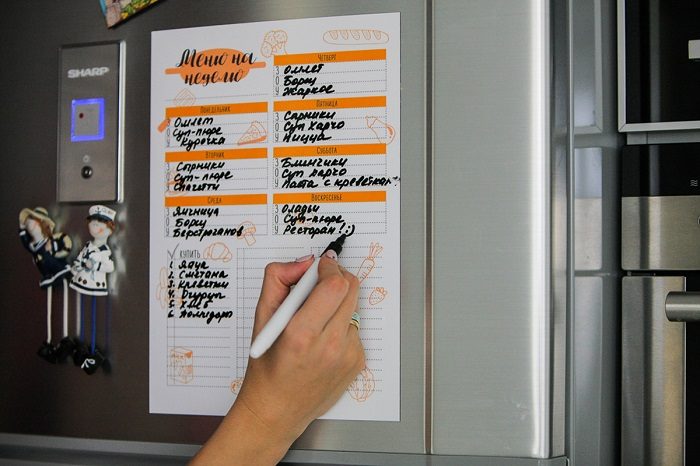 SHARP
Меню на
неделю
Понедельник
З Омлет
О Суп-пюре
У Курочка
Вторник
З Сырники
О Суп-пюре
У Спагетти
Среда
З Яичница
О Борщ
У Бефстроганов
Четверг
З Омлет
О Борщ
У Жаркое
Пятница
З Сырники
О Суп Харчо
У Пицца
Суббота
З Блинчики
О Суп харчо
У Паста с креветкам
Воскресенье
З Оладьи
О Суп-пюре
У Ресторан! :)
Купить
1. Яйца
2. Сметана
3. Креветки
4. Йогурт
5. Хлеб
6. Помидоры